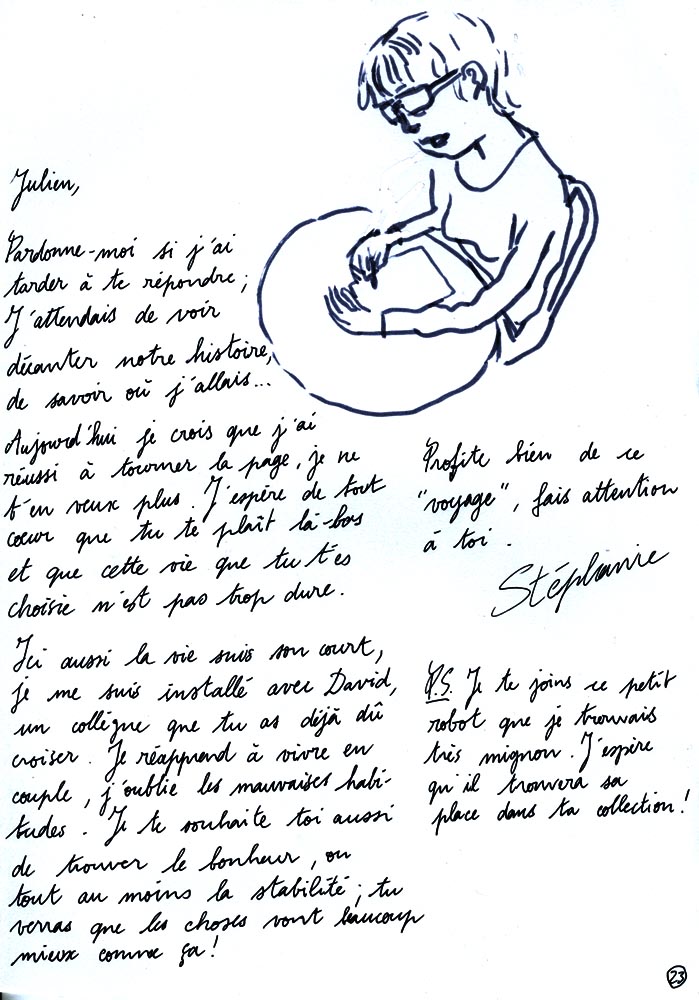 Julien,
Pardonne-moi si j'ai
tarder à te répondre ;
J'attendais de voir
décanter notre histoire,
de savoir où j'allais...
Aujourd'hui je crois que j'ai
réussi à tourner la page, je ne
t'en veux plus. J'espère de tout
cœur que tu te plaît là-bas
et que cette vie que tu t'es
choisie n'est pas trop dure.
Ici aussi la vie suis son court,
je me suis installé avec David,
un collègue que tu as déjà dû
croiser. Je réapprend à vivre en
couple, j'oublie les mauvaises habi-
tudes. Je te souhaite toi aussi
de trouver le bonheur, ou
tout au moins la stabilité ; tu
verras que les choses vont beaucoup
mieux comme ça !
Profite bien de ce
"voyage", fais attention
à toi.
Stéphanie
P.S. Je te joins ce petit
robot que je trouvais
très mignon. J'espère
qu'il trouvera sa
place dans ta collection !
23